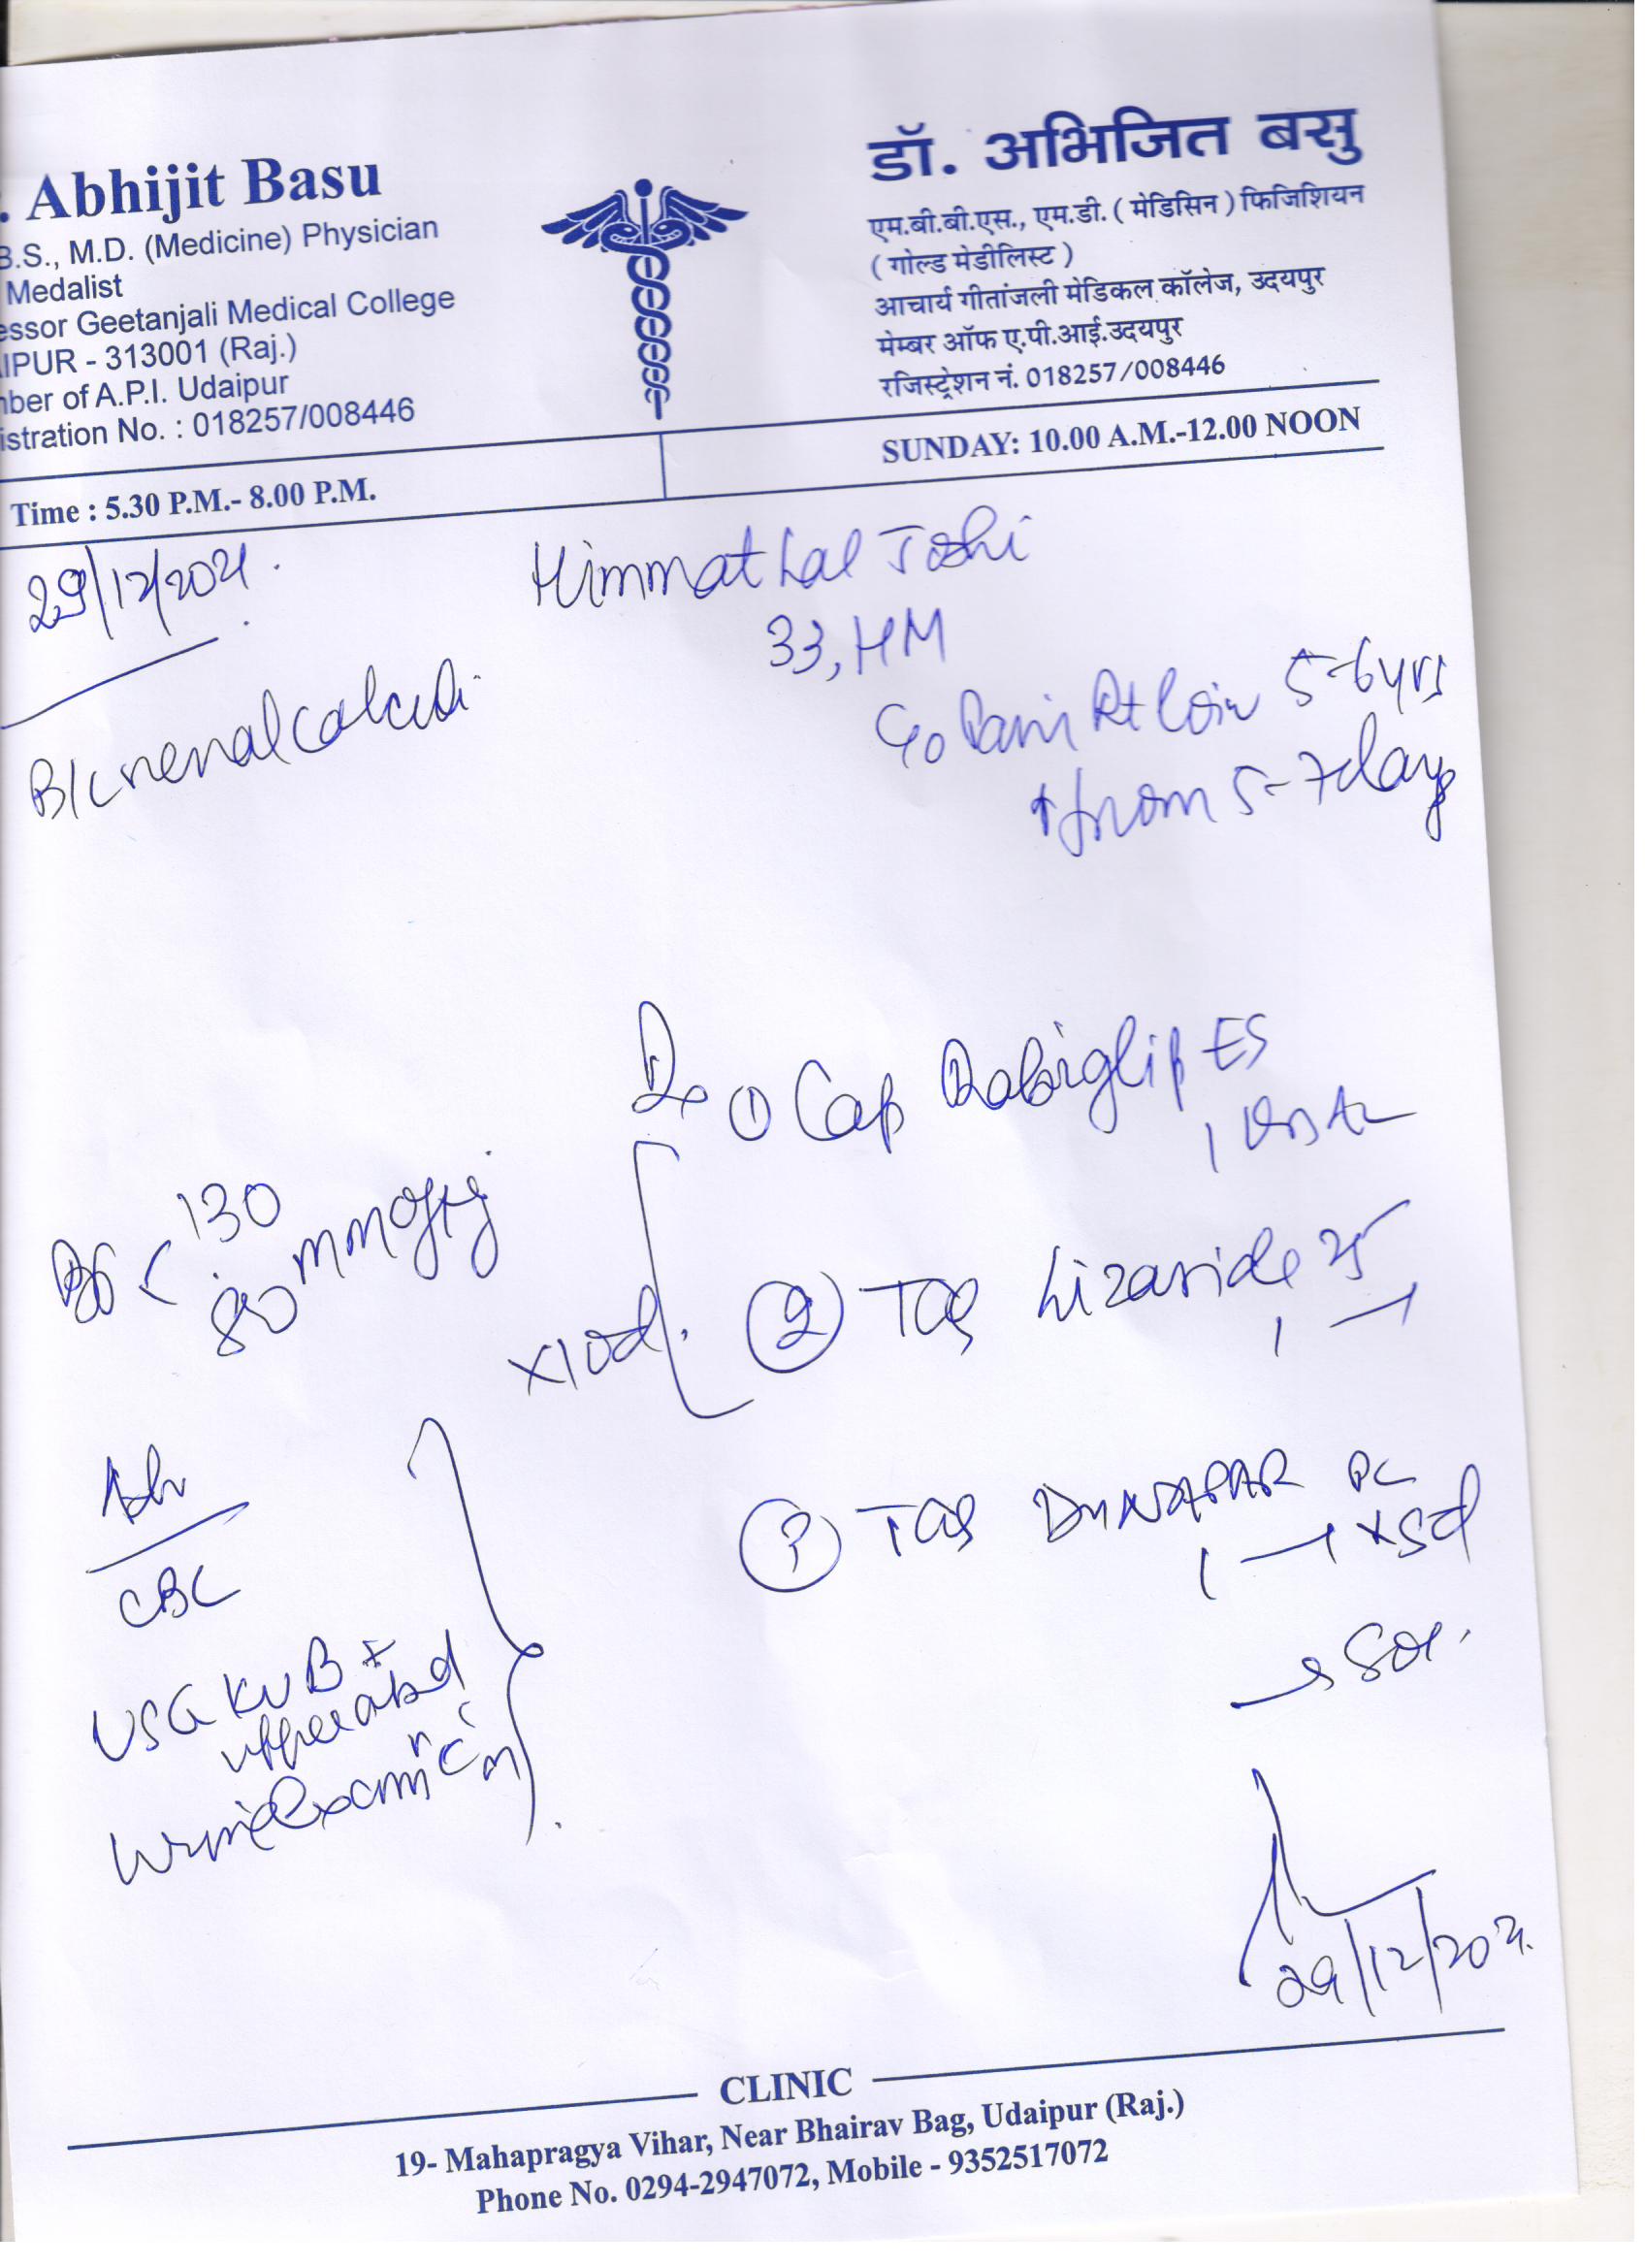 . Abhijit Basu
B.S., M.D. (Medicine) Physician
Medalist
essor Geetanjali Medical College
IPUR - 313001 (Raj.)
ber of A.P.I. Udaipur
istration No. : 018257/008446
डॉ. अभिजित बसु
एम.बी.बी.एस., एम.डी. ( मेडिसिन ) फिजिशियन
( गोल्ड मेडीलिस्ट )
आचार्य गीतांजली मेडिकल कॉलेज, उदयपुर
मेम्बर ऑफ ए.पी.आई.उदयपुर
रजिस्ट्रेशन नं. 018257/008446
Time : 5.30 P.M.- 8.00 P.M.
SUNDAY: 10.00 A.M.-12.00 NOON
29/12/2021.
Himmat Lal Joshi
33, HM
B/L renal calculi
C/o Pain Rt loin 5-6 yrs
↑ from 5-7 days
Rx ① Cap Rabiglip ES
1
BP < 130
80 mmofHg
x10d. ② Tab Lizaride 25
1 — 1
Adv
CBC
③ Tab DYNAPAR
1 — 1 x5d
→ SOS.
USG KUB +
upper abd
urine examicn
29/12/202
CLINIC
19- Mahapragya Vihar, Near Bhairav Bag, Udaipur (Raj.)
Phone No. 0294-2947072, Mobile - 9352517072